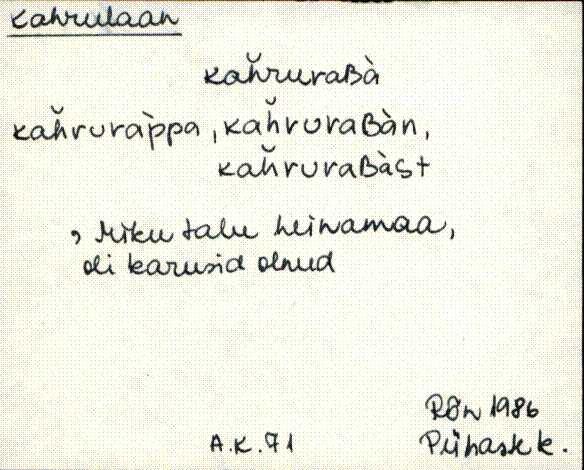 Kahrulaan
kaȟruraʙà
kaȟruràppa, kaȟruraʙàn,
kaȟruraʙàst
, Miku talu heinamaa,
oli karusid olnud
Rõu 1986
A.K. 71 Pühaste k.